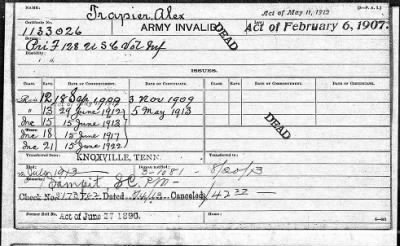 NAME: Trapier, Alex Act of May 11, 1912 (3-P. A. 1.)
Certificate 1133026 ARMY INVALID. DEAD Law: Act of February 6, 1907.
Pri F 128 U S C Vol Inf
Disability:
ISSUES.
CLASS. RATE. DATE OF COMMENCEMENT. DATE OF CERTIFICATE. CLASS. RATE. DATE OF COMMENCEMENT. DATE OF CERTIFICATE.
12 18 Sep. 1909 3 Nov 1909
" 13 29 June 1912 5 May 1913
Inc 15 15 June 1913
Inc 18 15 June 1917
Inc 21 15 June 1922
DEAD
Transferred from KNOXVILLE, TENN.
July 1913 3-1081 8/20/13
Sampit, S.C.
Check No. 3173783 Dated 8/4/13 Canceled 42
Former Roll No. Act of June 27 1890.